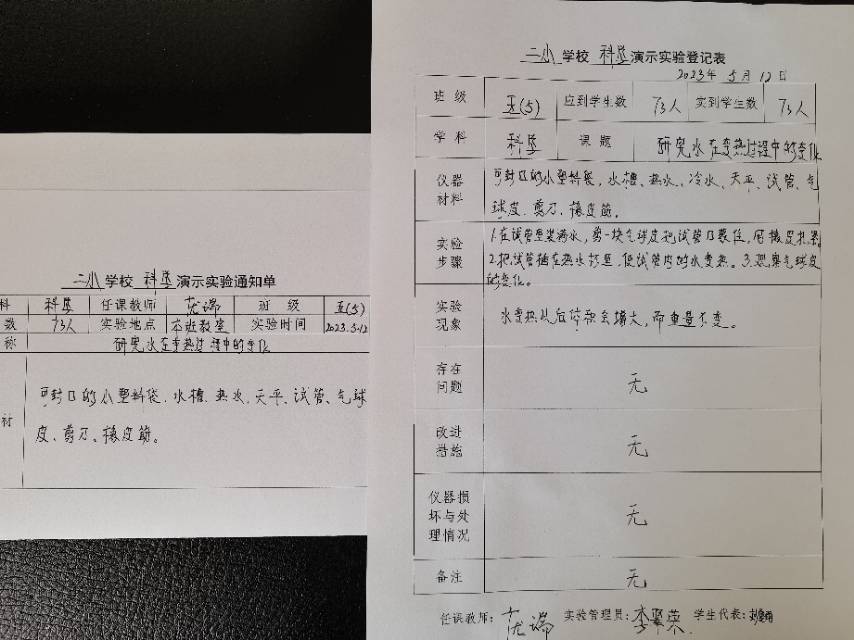 二小学校 科学演示实验通知单
科 科学 任课教师 范瑞 班级 五(5)
数 73人 实验地点 本班教室 实验时间 2023.5.12
称 研究水在变热过程中的变化
材 可封口的小塑料袋、水槽、热水、天平、试管、气球
皮、剪刀、橡皮筋。
二小学校 科学演示实验登记表
2023年5月12日
班级 五(5) 应到学生数 73人 实到学生数 73人
学科 科学 课题 研究水在变热过程中的变化
仪器材料 可封口的小塑料袋、水槽、热水、冷水、天平、试管、气
球皮、剪刀、橡皮筋。
实验步骤 1.在试管里装满水,剪一块气球皮把试管口裹住,用橡皮扎紧
2.把试管插在热水杯里,使试管内的水变热。3.观察气球皮
的变化。
实验现象 水变热以后体积会增大,而重量不变。
存在问题 无
改进措施 无
仪器损坏与处理情况 无
备注 无
任课教师: 范瑞 实验管理员: 李聚荣 学生代表: